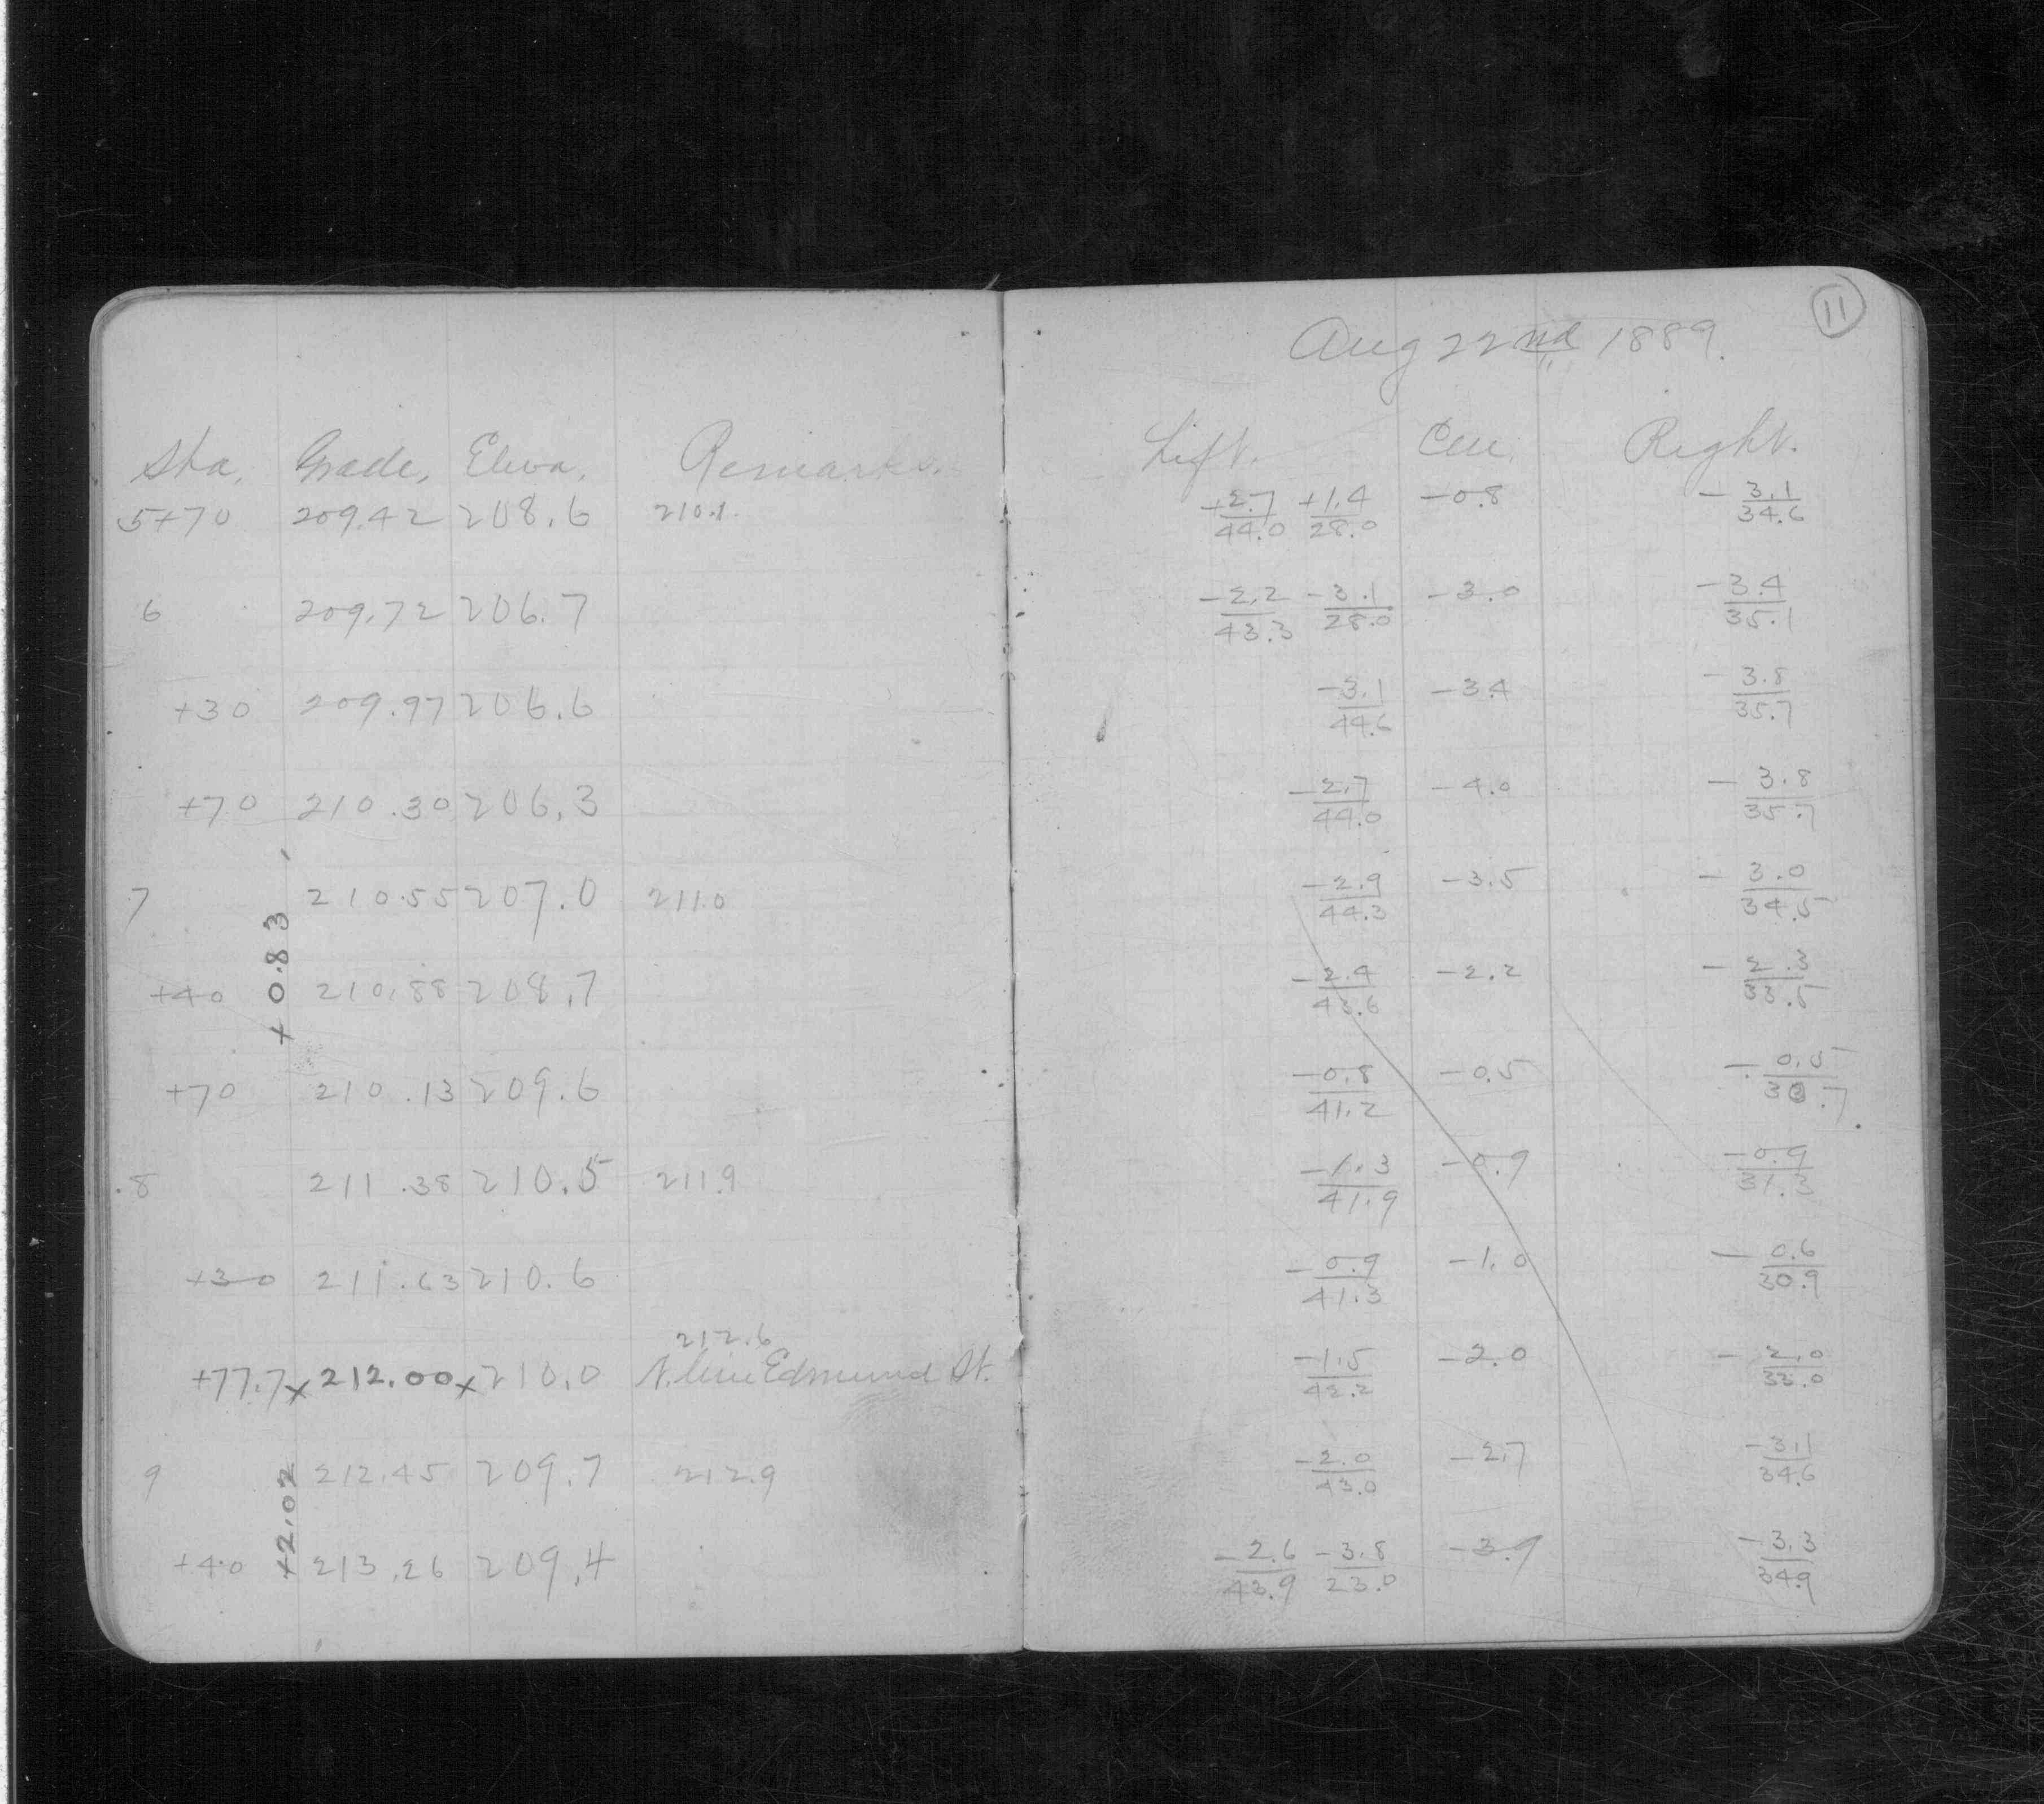 11
Aug 22nd 1889.
Sta. Grade, Eleva, Remarks. Left. Cen. Right.
5+70 209.42 208.6 210.1. +2.7/44.0 +1.4/28.0 -0.8 -3.1/34.6
6 209.72 206.7 -2.2/43.3 -3.1/28.0 -3.0 -3.4/35.1
+30 209.97 206.6 -3.1/44.6 -3.4 -3.8/35.7
+70 210.30 206.3 -2.7/44.0 -4.0 -3.8/35.7
7 210.55 207.0 211.0 -2.9/44.3 -3.5 -3.0/34.5
+0.83
+40 210.88 208.7 -2.4/43.6 -2.2 -2.3/33.5
+70 210.13 209.6 -0.8/41.2 -0.5 -0.5/30.7
8 211.38 210.5 211.9 -1.3/41.9 -0.9 -0.9/31.3
+30 211.63 210.6 -0.9/41.3 -1.0 -0.6/30.9
212.6
+77.7 x 212.00 x 210.0 N. line Edmund St. -1.5/42.2 -2.0 -2.0/33.0
9 212.45 209.7 212.9 -2.0/43.0 -2.7 -3.1/34.6
+2.02
+40 213.26 209.4 -2.6/43.9 -3.8/23.0 -3.9 -3.3/34.9